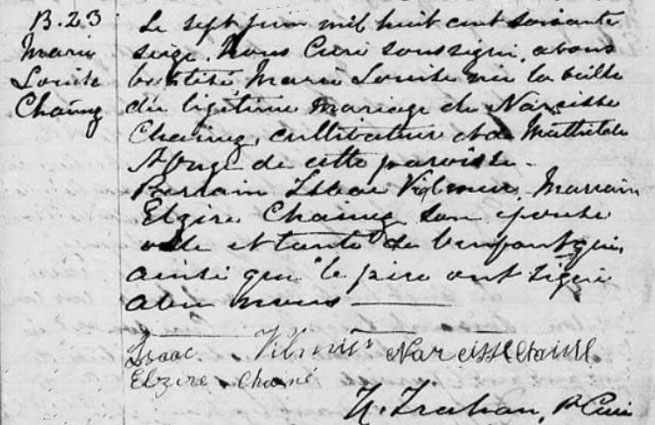 B. 23
Marie
Louise
Chainez
Le sept juin mil huit cent soixante
seize, Nous Curé soussigné, avons
baptisé Marie Louise née la veille
du légitime mariage de Narcisse
Chainez, cultivateur et de Mathilde
de cette paroisse.
Parrain Isaac Vilmur, Marraine
Elzire Chainez son épouse
oncle et tante de l'enfant qui,
ainsi que le père ont signé
avec nous
Isaac Narcisse
Elzire Chainé
N. Trahan, Ptre Curé